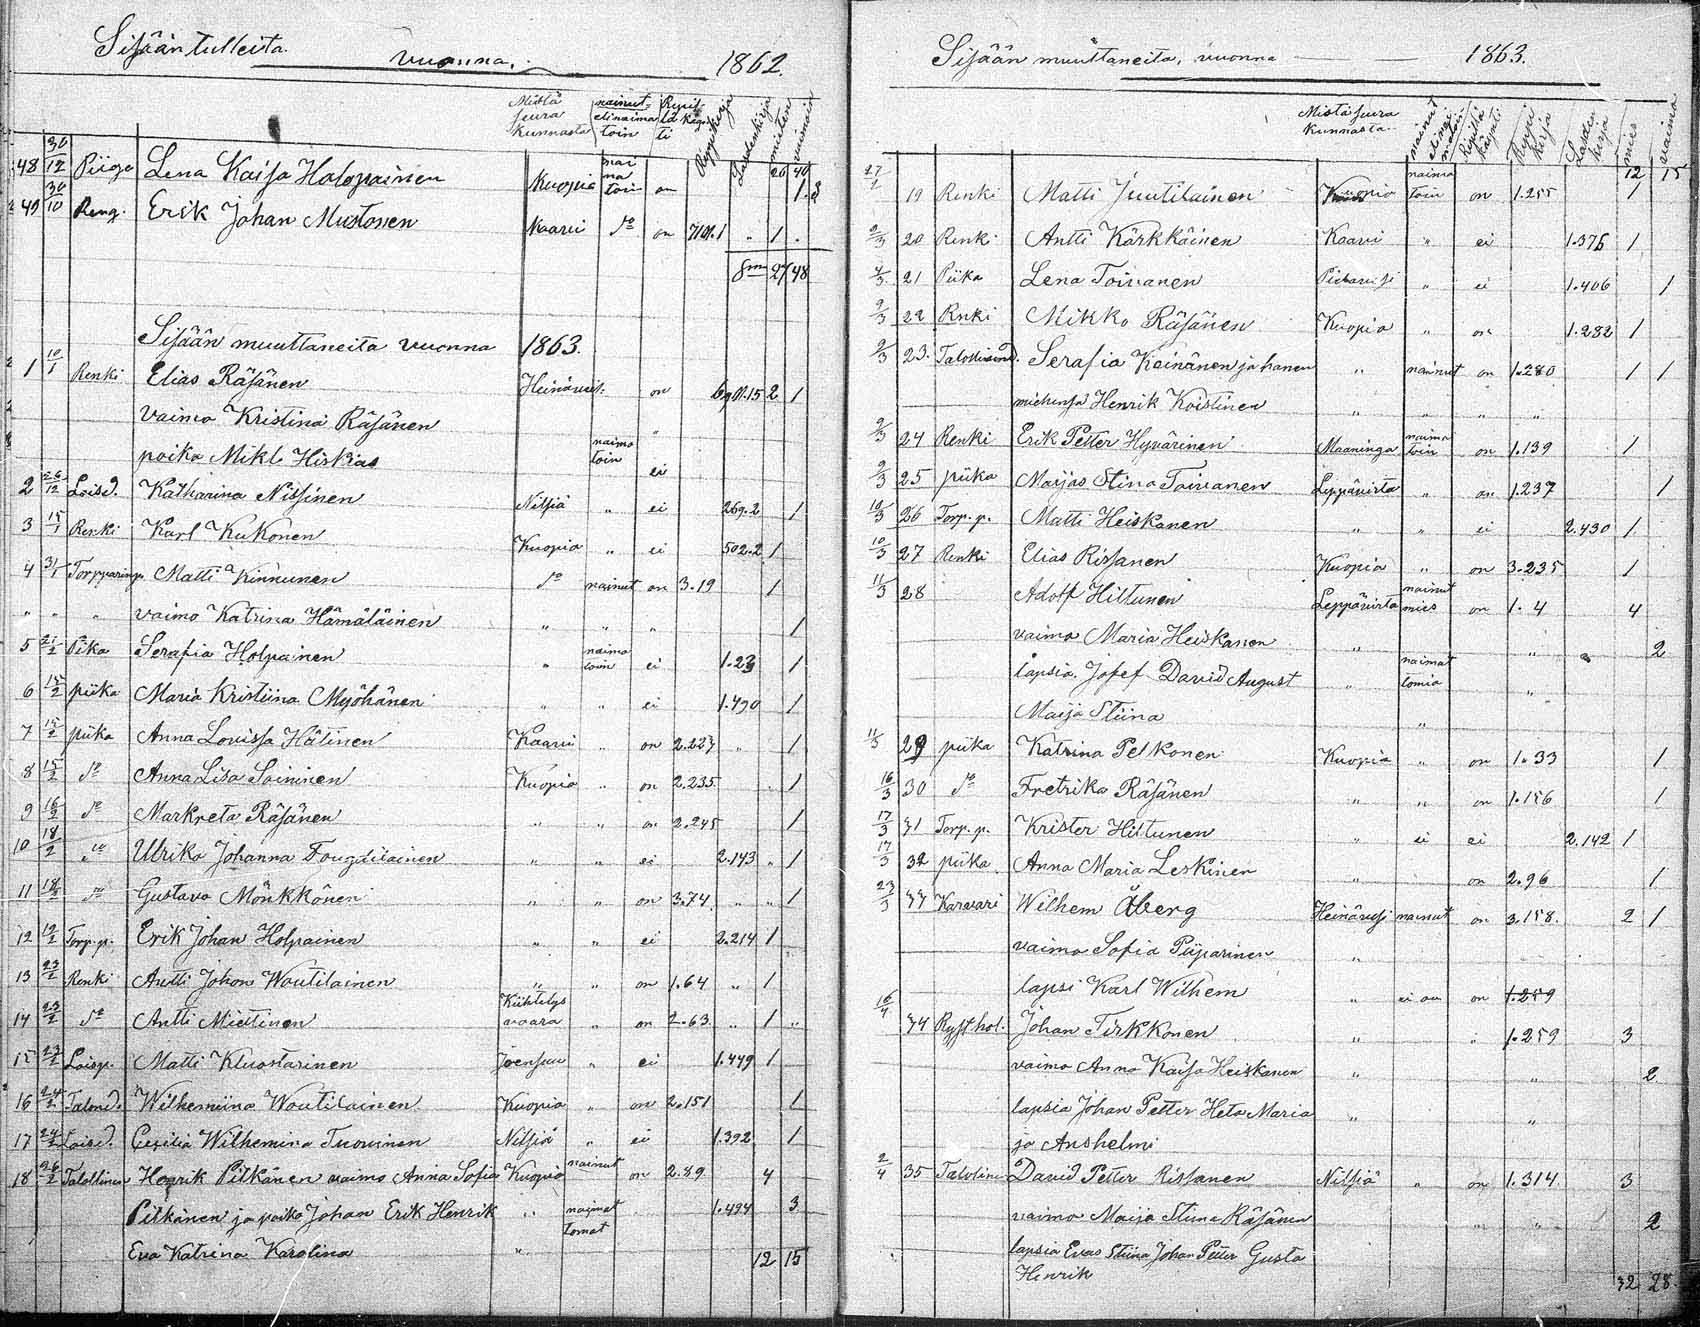 Sisään tulleita
vuonna. 1862.
Mistä seura kunnasta
nainut eli naima toin
Ripillä käynti
Rippikirja
Lastenkirja
miesten
vaimoin
26 40
48 30/12 Piiga Lena Kaisa Holopainen Kuopio nai ma toin on 1.8
49 30/10 Reng. Erik Johan Mustonen Kaavi do on 1 .
Sum 27 48
Sisään muuttaneita vuonna 1863.
1 10/1 Renki Elias Räsänen Heinäves: on 2 1
vaimo Kristina Räsänen "
poika Mikl Hiskias naima toin ei
2 26/12 Loisd. Katharina Nissinen Nilsiä " ei 269.2 1
3 15/1 Renki Karl Kukonen Kuopio " ei 502.2 1
4 3/1 Torpparinp. Matti Kinnunen do nainut on 3.19 1
" " " vaimo Katrina Hämäläinen " " " 1
5 21/2 Pika Serafia Holpainen " naima toin ei 1.23 1
6 15/2 piika Maria Kristiina Myöhänen " " ei 1.490 1
7 15/2 piika Anna Lovissa Hätinen Kaavi " on 2.227 " 1
8 15/2 do Anna Lisa Soininen Kuopio " on 2.235. " 1
9 16/2 do Markreta Räsänen " " on 2.245 1
10 18/2 " Ulrika Johanna " " ei 2.143 " 1
11 18/2 do Gustava Mönkkönen " " on 3.74 " " 1
12 19/2 Torp.p. Erik Johan Holpainen " " ei 2.214 1
13 23/2 Renki Antti Johon Woutilainen " " on 1.64 " 1
14 23/2 do Antti Miettinen Kiihtelys vaara " on 2.63. " 1 "
15 23/2 Loisp. Matti Kluostarinen Joensuu " ei 1.449 1
16 24/2 Talond. Wilhemiina Woutilainen Kuopio " on 2.151 1
17 24/2 Loisd. Cecilia Wilhemina Tuovinen Nilsiä " ei 1.392 1
18 26/2 Talollinen Henrik Pitkänen vaimo Anna Sofia Kuopio nainut on 2.89 4
Pitkänen ja poika Johan Erik Henrik " naimat tomat 1.494 3
Eva Katrina Karolina " 12 15
Sisään muuttaneita, vuonna 1863.
Mistä seura kunnasta
nainut eli nai matoin
Ripillä käynti
Rippi kirja
Lasten kirja
mies
vaimo
12 15
27/2 19 Renki Matti Juutilainen Kuopio naima toin on 1.255 1
2/3 20 Renki Antti Kärkkäinen Kaavi " ei 1.376 1
4/3 21 Piika Lena Toivanen Pielavesi " ei 1.406 1
9/3 22 Renki Mikko Räsänen Kuopio " on 1.282 1
9/3 23. Serafia Keinänen ja hanen " nainut on 1.280 1 1
miehensä Henrik Koistinen " " " "
9/3 24 Renki Erik Petter Hyvärinen Maaninga naima toin on 1.139 1
9/3 25 piika Maijas Stina Toivanen Leppävirta " on 1.237 1
10/3 26 Torp.p. Matti Heiskanen " " ei 2.430 1
10/3 27 Renki Elias Rissanen Kuopia " on 3.235 1
11/3 28 Adolf Hiltunen Leppävirta nainut mies on 1.4 4
vaimo Maria Heiskanen " " 2
lapsia. Josef David August " naimat tomia "
Maija Stiina "
11/3 29 piika Katrina Pelkonen Kuopia " on 1.33 1
16/3 30 do Fretrika Räsänen " " on 1.156 1
17/3 31 Torp.p. Krister Hiltunen " ei ei 2.142 1
17/3 32 piika Anna Maria Leskinen " on 2.96 1
23/3 33 Karvari Wilhem Åberg Heinävesi nainut on 3.158. 2 1
vaimo Sofia Piiparinen "
lapsi Karl Wilhem " on 1.259
16/4 34 Johan Tirkkonen " " " 1.259 3
vaimo Anna Kaisa Heiskanen " " 2
lapsia Johan Petter Heta Maria " "
ja Anshelmi
2/4 35 Talolinen David Petter Rissanen Nilsiä " on 1.314 3
vaimo Maija Stiina Räsänen " " 2
lapsia Evas Stiina Johan Petter Gusta
Henrik
32 28